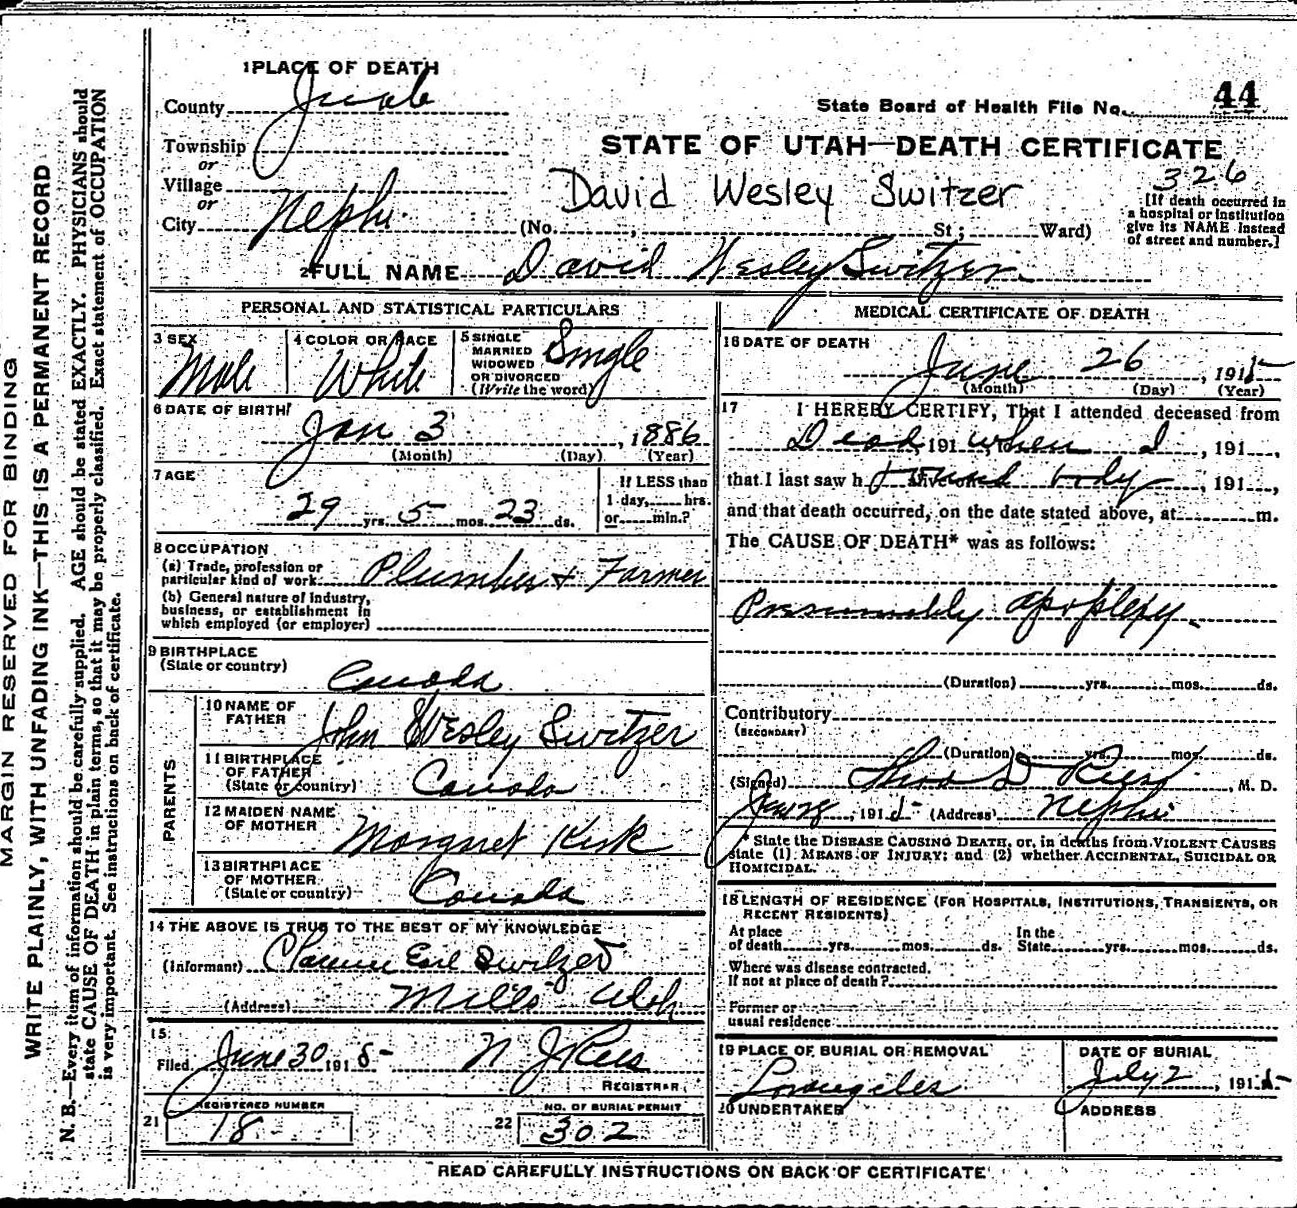 MARGIN RESERVED FOR BINDING
WRITE PLAINLY, WITH UNFADING INK—THIS IS A PERMANENT RECORD
N. B.—Every item of information should be carefully supplied. AGE should be stated EXACTLY. PHYSICIANS should
state CAUSE OF DEATH in plain terms, so that it may be properly classified. Exact statement of OCCUPATION
is very important. See instructions on back of certificate.
1 PLACE OF DEATH
County Juab
State Board of Health File No. 44
Township
or
Village
or
City Nephi
STATE OF UTAH—DEATH CERTIFICATE
326
David Wesley Switzer
(No. , St ; Ward)
[If death occurred in
a hospital or institution
give its NAME instead
of street and number.]
2 FULL NAME David Wesley Switzer
PERSONAL AND STATISTICAL PARTICULARS
3 SEX Male
4 COLOR OR RACE White
5 SINGLE
MARRIED
WIDOWED
OR DIVORCED
(Write the word) Single
6 DATE OF BIRTH
Jan 3 , 1886
(Month) (Day) (Year)
7 AGE
29 yrs. 5 mos. 23 ds.
If LESS than
1 day, hrs.
or min.?
8 OCCUPATION
(a) Trade, profession or
particular kind of work Plumber + Farmer
(b) General nature of industry,
business, or establishment in
which employed (or employer)
9 BIRTHPLACE
(State or country)
Canada
PARENTS
10 NAME OF
FATHER John Wesley Switzer
11 BIRTHPLACE
OF FATHER
(State or country) Canada
12 MAIDEN NAME
OF MOTHER Margret Kirk
13 BIRTHPLACE
OF MOTHER
(State or country) Canada
14 THE ABOVE IS TRUE TO THE BEST OF MY KNOWLEDGE
(Informant) Clarence Earl Switzer
(Address) Mills Utah
15
Filed June 30 1915 N J Rees
REGISTRAR
21 REGISTERED NUMBER
18
22 NO. OF BURIAL PERMIT
302
MEDICAL CERTIFICATE OF DEATH
16 DATE OF DEATH
June 26 , 1915
(Month) (Day) (Year)
17 I HEREBY CERTIFY, That I attended deceased from
Dead 191 when I , 191 ,
that I last saw h found body , 191 ,
and that death occurred, on the date stated above, at m.
The CAUSE OF DEATH* was as follows:
Presumably apoplexy.
(Duration) yrs. mos. ds.
Contributory
(SECONDARY)
(Duration) yrs. mos. ds.
(Signed) Thos D Rees , M. D.
, 1915 (Address) Nephi
* State the DISEASE CAUSING DEATH, or, in deaths from VIOLENT CAUSES
state (1) MEANS OF INJURY; and (2) whether ACCIDENTAL, SUICIDAL OR
HOMICIDAL.
18 LENGTH OF RESIDENCE (FOR HOSPITALS, INSTITUTIONS, TRANSIENTS, OR
RECENT RESIDENTS)
At place
of death yrs. mos. ds.
In the
State yrs. mos. ds.
Where was disease contracted.
If not at place of death?
Former or
usual residence
19 PLACE OF BURIAL OR REMOVAL
Los Angeles
DATE OF BURIAL
July 2 , 1915
20 UNDERTAKER
ADDRESS
READ CAREFULLY INSTRUCTIONS ON BACK OF CERTIFICATE